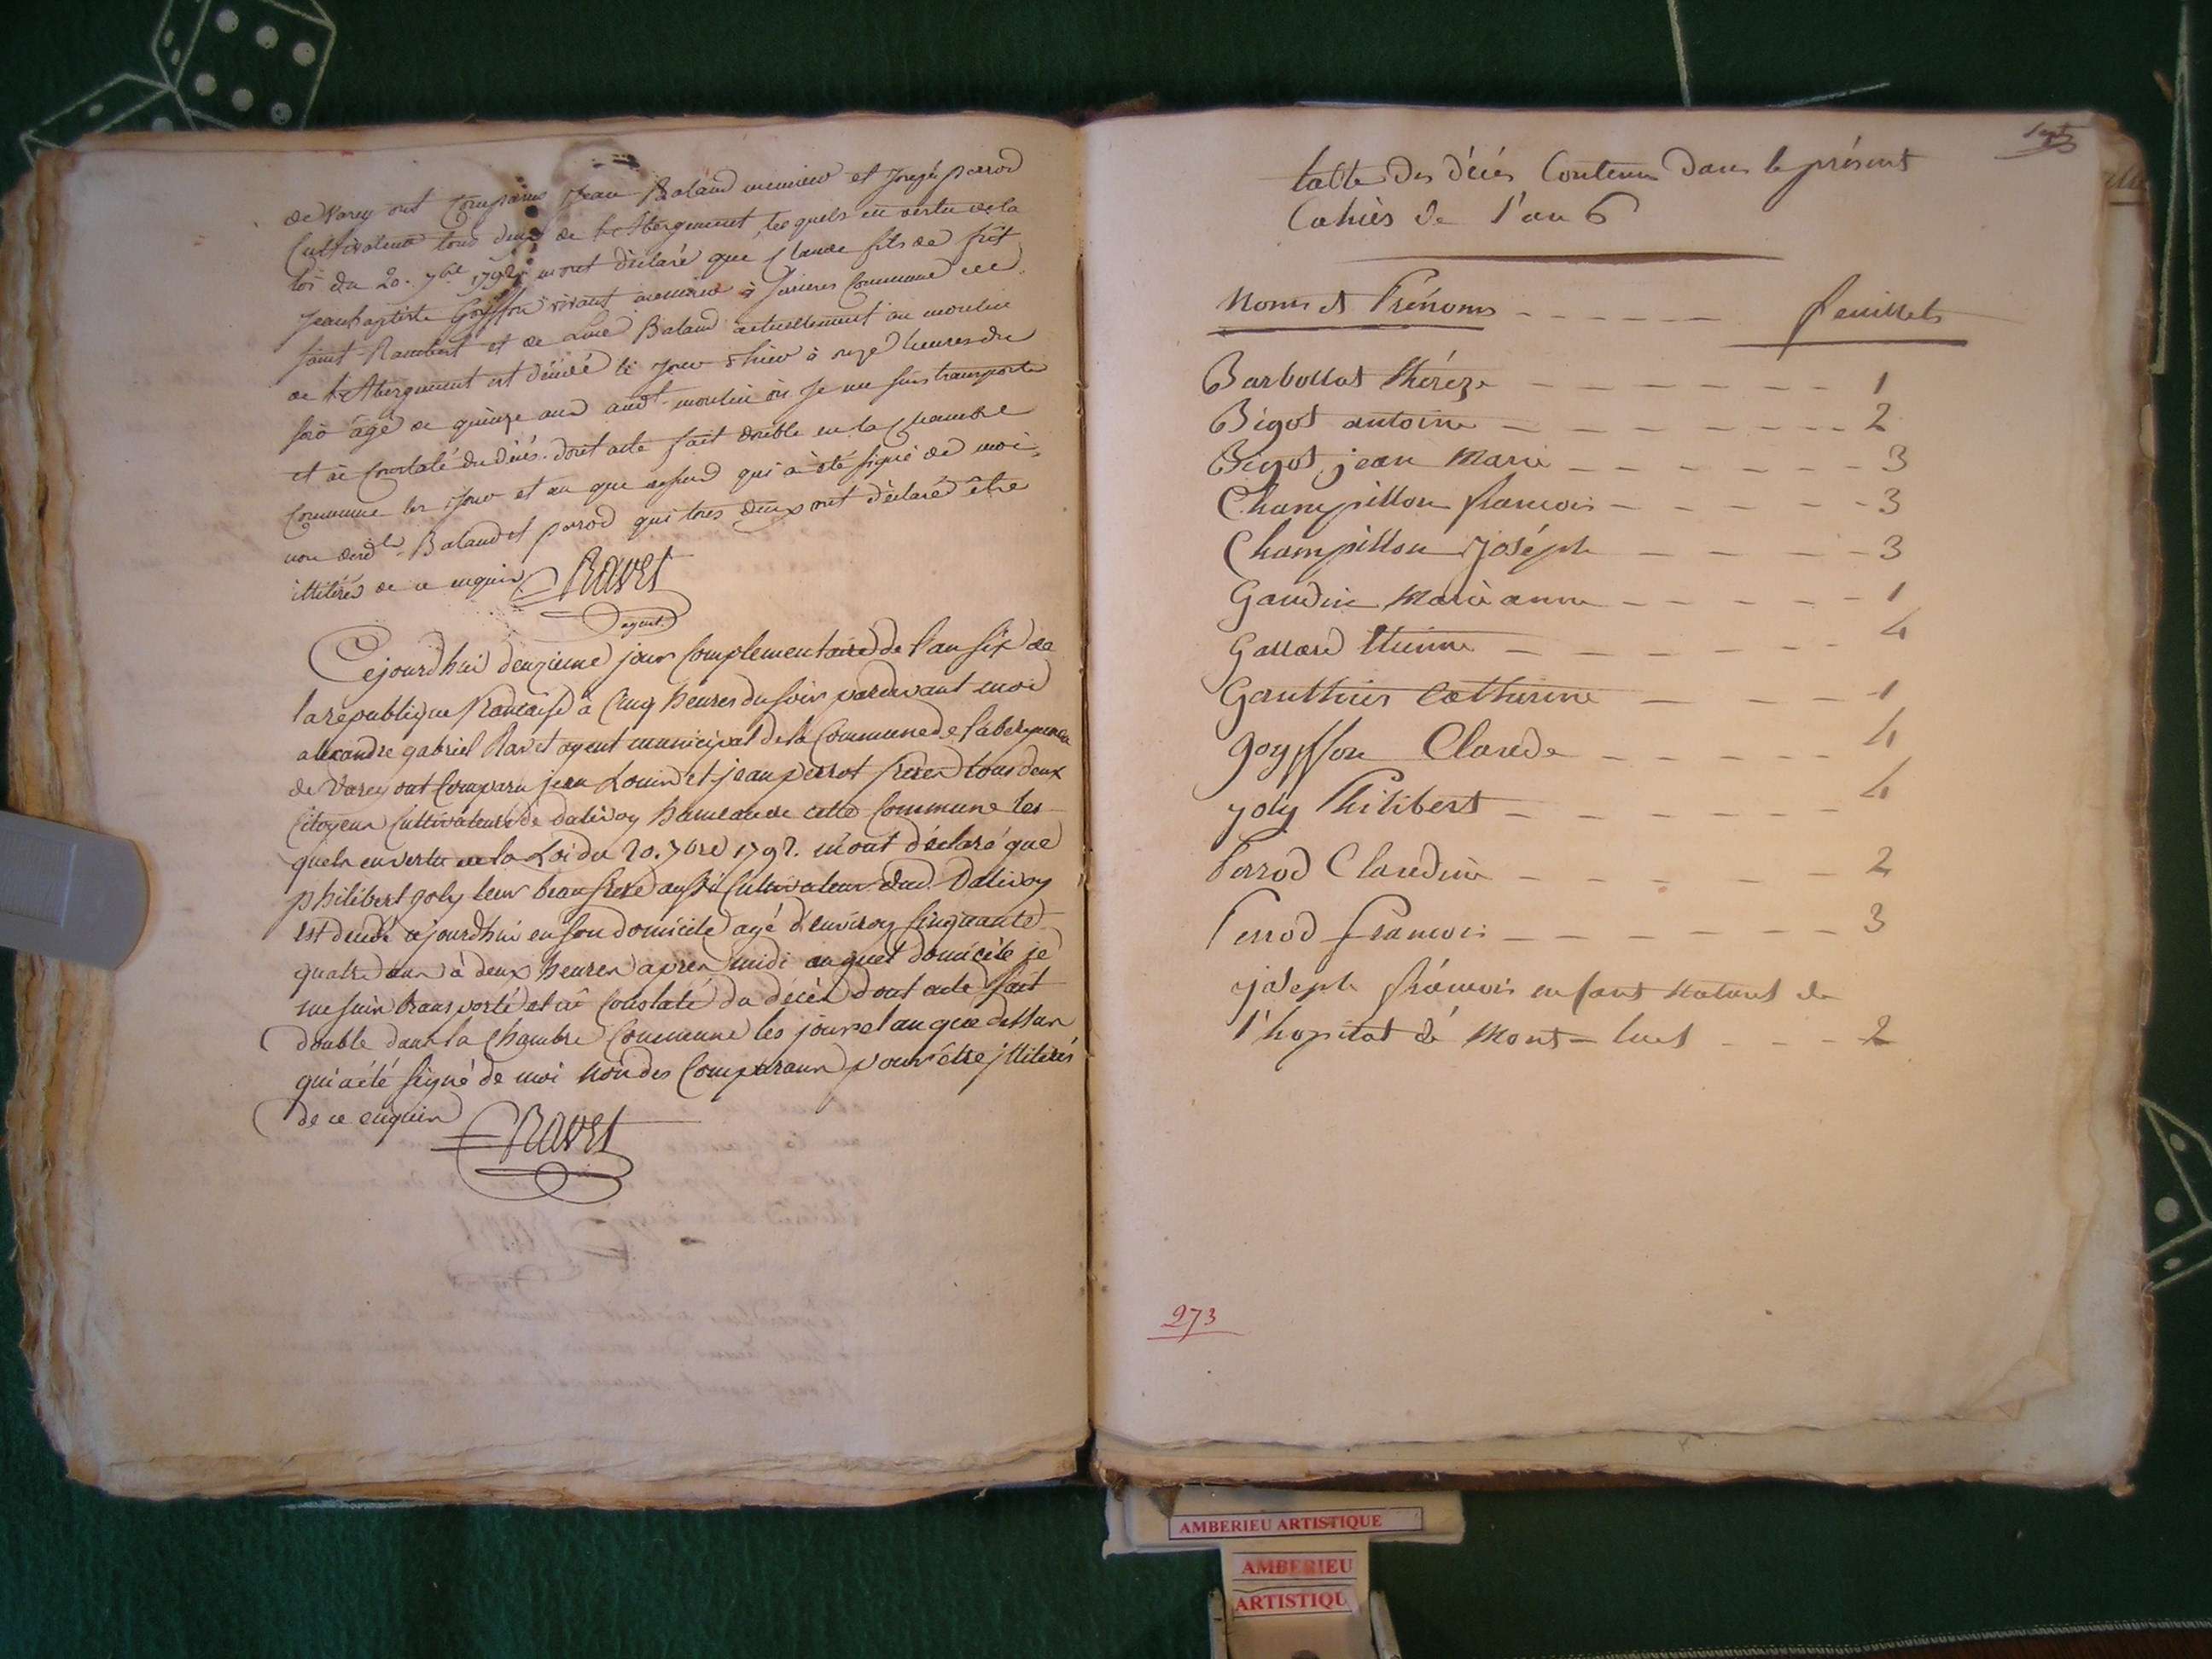 de Varey ont Comparus Jean Baland meunier et Joseph perrod
Cultivateur tous deux de l'Abergement, lesquels en vertu de la
loi du 20. 7bre 1792 m'ont déclaré que Claude fils de füt
Jeanbaptiste Goyffon vivant meunier à Commune de
saint Rambert et de Baland actuellement au moulin
de l'Abergement est décédé le jour d'hier à onze heures du
soir âgé de quinze ans audt. moulin où Je me suis transporté
et ai Constaté du décés. dont acte fait double en la Chambre
Commune les Jour et an que dessus qui a été signé de moi,
non desdts. Baland et perrod qui tous deux ont déclaré être
illitérés de ce enquis
Ravet
agent.
Cejourdhui deuzieme jour Complementaire de l'an six de
la republique francaise à Cinq heures du soir pardevant moi
alexandre gabriel Ravet agent municipal de la Commune de l'abergement
de Varey ont Comparu jean Louin et jean perrot freres tous deux
Citoyens Cultivateurs de dalivoy hameau de cette Commune les
quels en vertu de la Loi du 20. 7bre 1792. m'ont déclaré que
philibert joly leur beau frere aussi Cultivateur dud. Dalivoy
est decedé ajourdhui en son domicile agé d'environ Cinquante
quatre ans à deux heures apres midi auquel domicile je
me suis transporté et ai Constaté du décès dont acte fait
double dans la Chambre Commune les jour et an que dessus
qui a été signé de moi non des Comparans pour être jllitérés
de ce enquis
Ravet
Sept
table des décés Contenus dans le présent
Cahiés de l'an 6
Noms et Prénoms - - - - - - feuillets
Barbollat théréze - - - - - - - 1
Bigot antoine - - - - - - - - 2
Bigot jean Marie - - - - - - - 3
Champillon francois - - - - - - 3
Champillon Joséph - - - - - 3
Gaudin Marie anne - - - - - - 1
Gallard Etienne - - - - - - 4
Gauthier Catherine - - - - 1
goyffon Claude - - - - - - 4
joly Philibert - - - - - - - 4
Perrod Claudine - - - - - - 2
Perrod francois - - - - - - - 3
joseph francois enfant naturel de
l'hopital de Mont-luel - - - 2
273
AMBERIEU ARTISTIQUE
AMBERIEU
ARTISTIQU